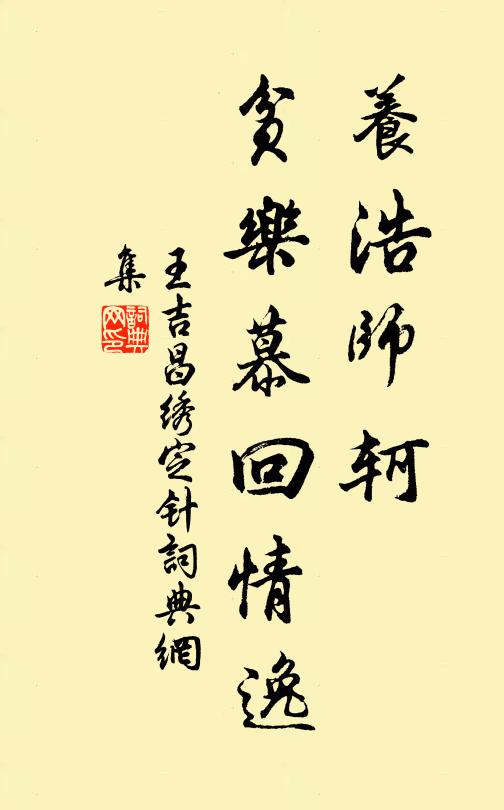 養浩師軻
貧樂慕回情逸
王吉昌绣定针詞典網
集
詞典
网印